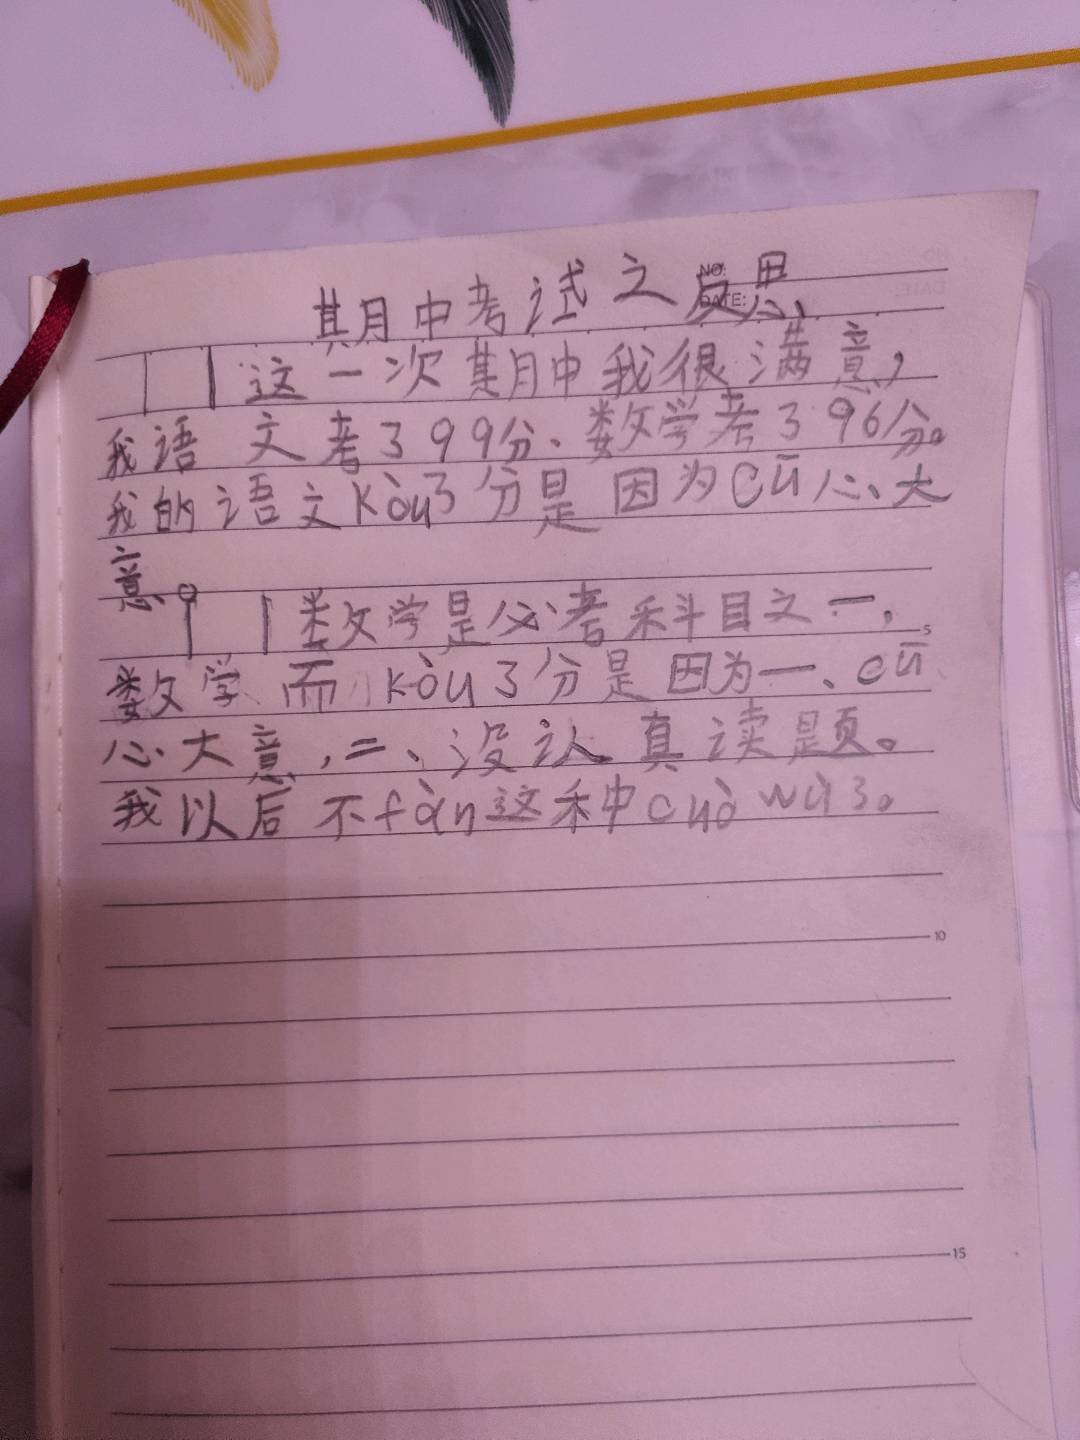 期中考试之反思
NO:
DATE:
这一次期中我很满意，
我语文考了99分、数学考了96分。
我的语文kòu了分是因为cū心、大
意。
数学是必考科目之一，
数学、而kòu了分是因为一、cū
心大意，二、没认真读题。
我以后不fàn这种cuò wù了。
5
10
15